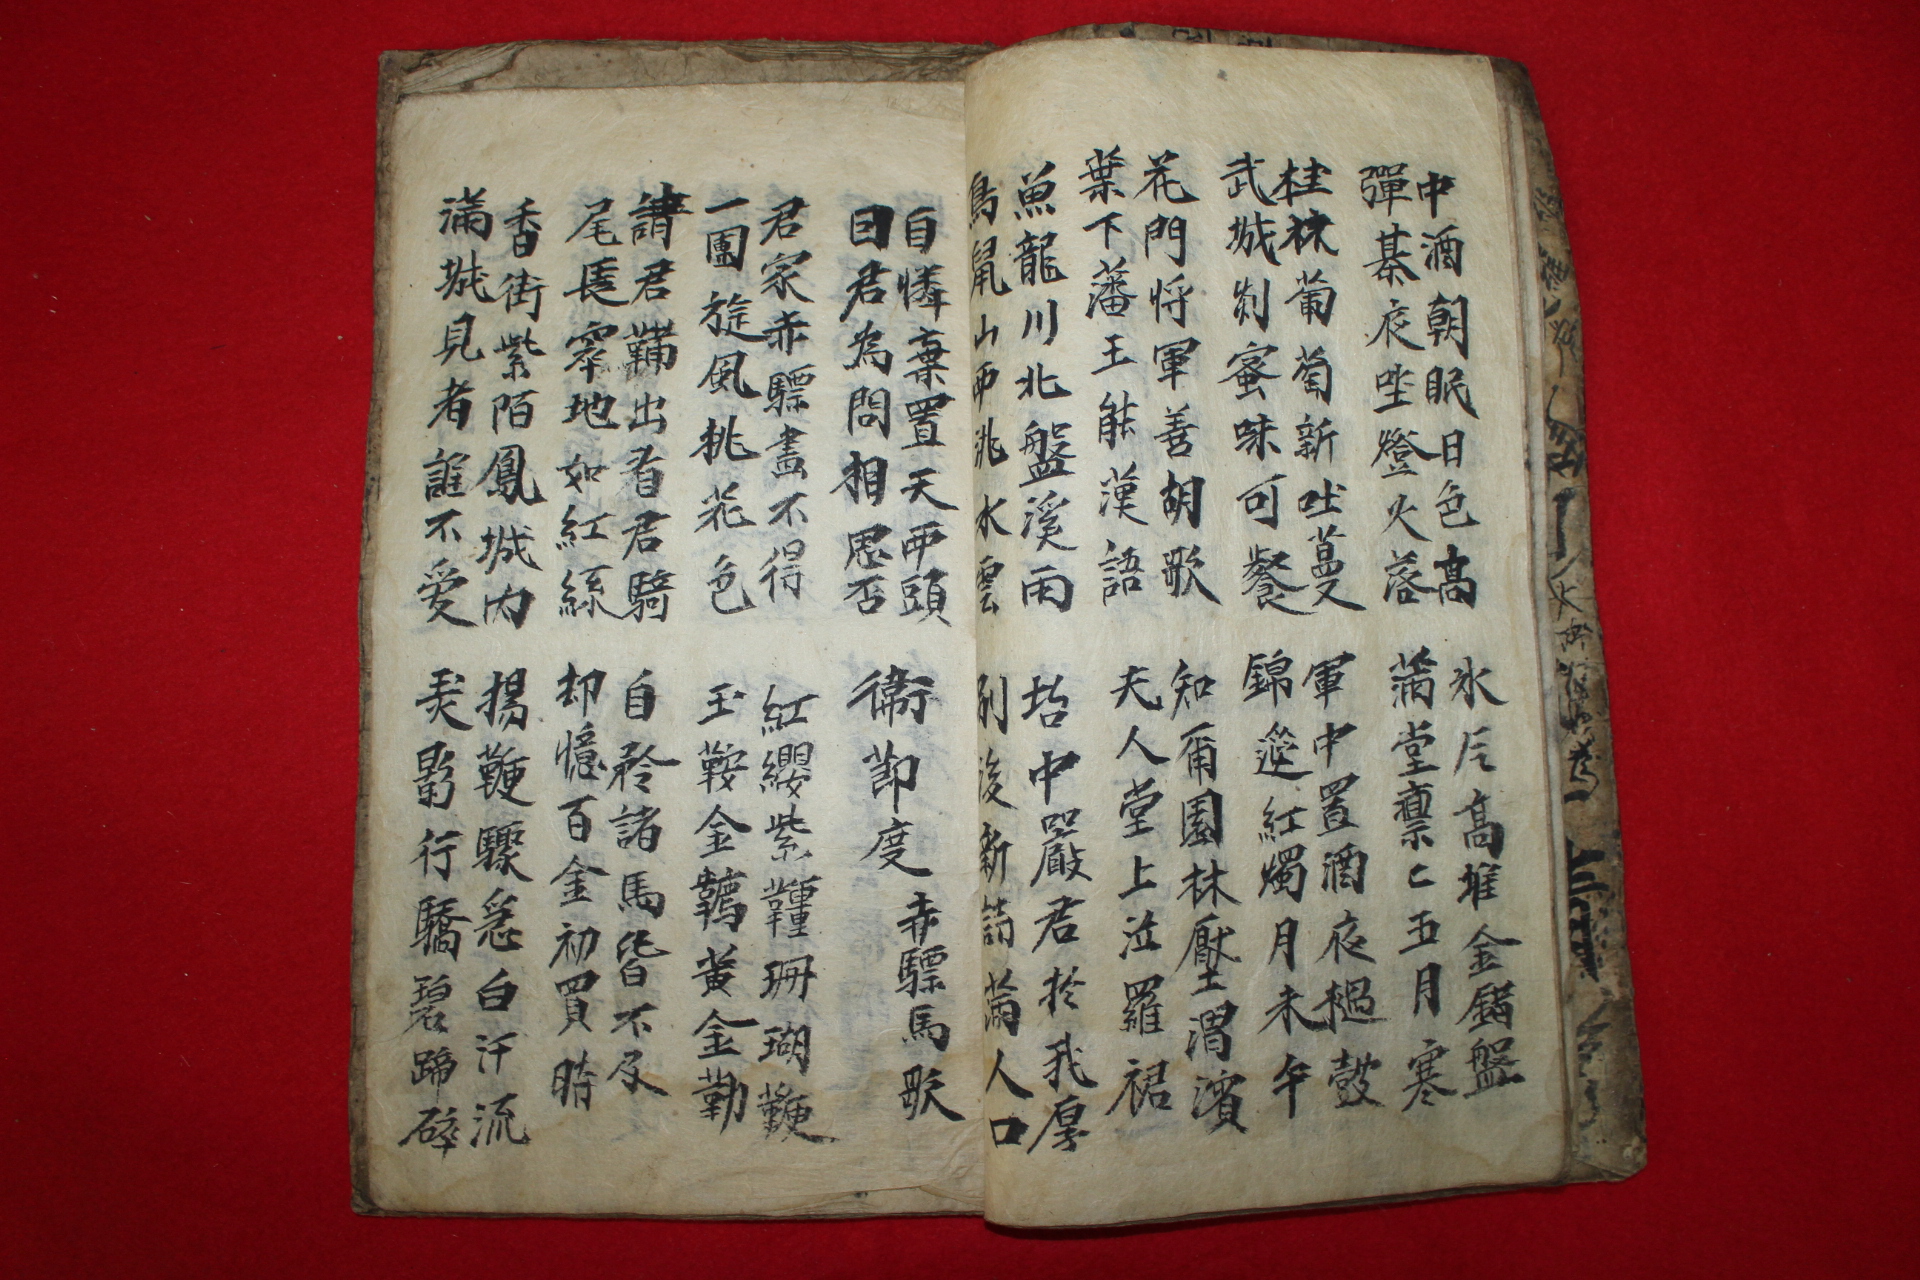 中酒朝眠日色高
彈棊夜坐燈火落
氷片高堆金錯盤
滿堂凛〻五月寒
桂林葡萄新吐蔓
武城刹蜜味可餐
軍中置酒夜撾鼓
錦筵紅燭月未午
花門將軍善胡歌
葉下藩王能漢語
知爾園林壓渭濱
夫人堂上泣羅裙
魚龍川北盤溪雨
鳥鼠山西洮水雲
坮中嚴君於我厚
別後新詩滿人口
自憐棄置天西頭
因君為問相思否
衛節度赤驃馬歌
君家赤驃畫不得
一團旋風桃花色
紅纓紫韁珊瑚鞭
玉鞍金韉黃金勒
請君鞴出看君騎
尾長窣地如紅絲
自矜諸馬皆不及
却憶百金初買時
香街紫陌鳳城內
滿城見者誰不愛
揚鞭驟急白汗流
弄影行驕碧蹄碎